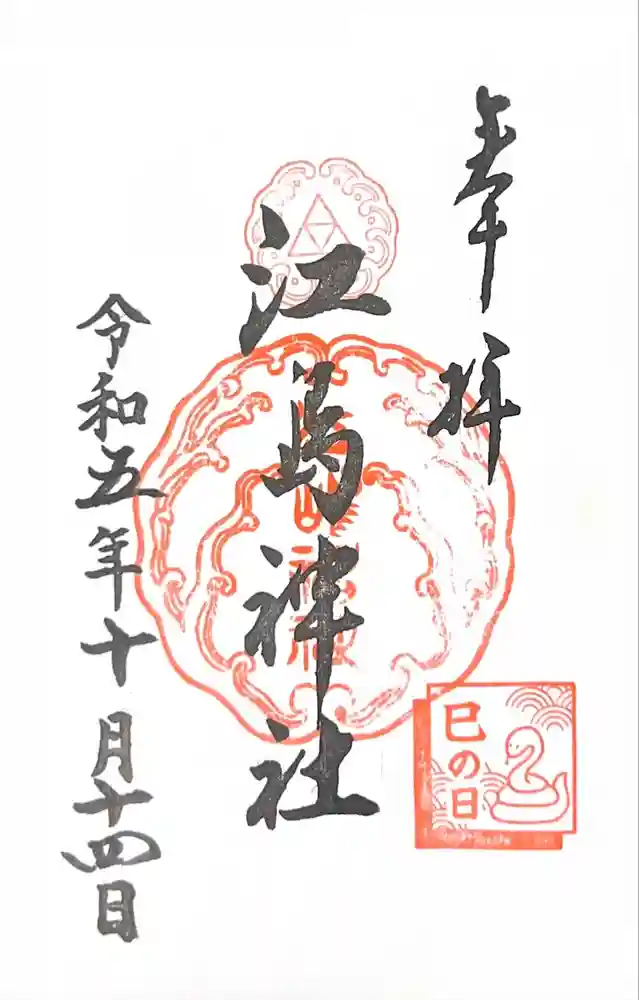 奉拝
江島神社
令和五年十月十四日
巳の日